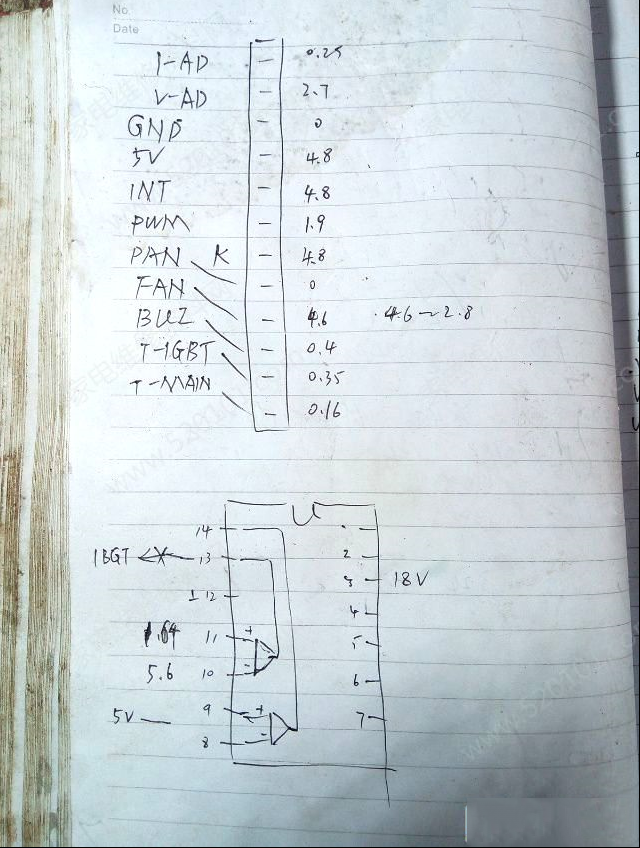 No.
Date
I-AD 0.25
V-AD 2.7
GND 0
5V 4.8
INT 4.8
PWM 1.9
PAN K 4.8
FAN 0
BUZ 4.6 4.6~2.8
T-IGBT 0.4
T-MAIN 0.35
0.16
14
IBGT 13 2
3 18V
12 4
1.64 11 5
5.6 10 6
5V 9 7
8